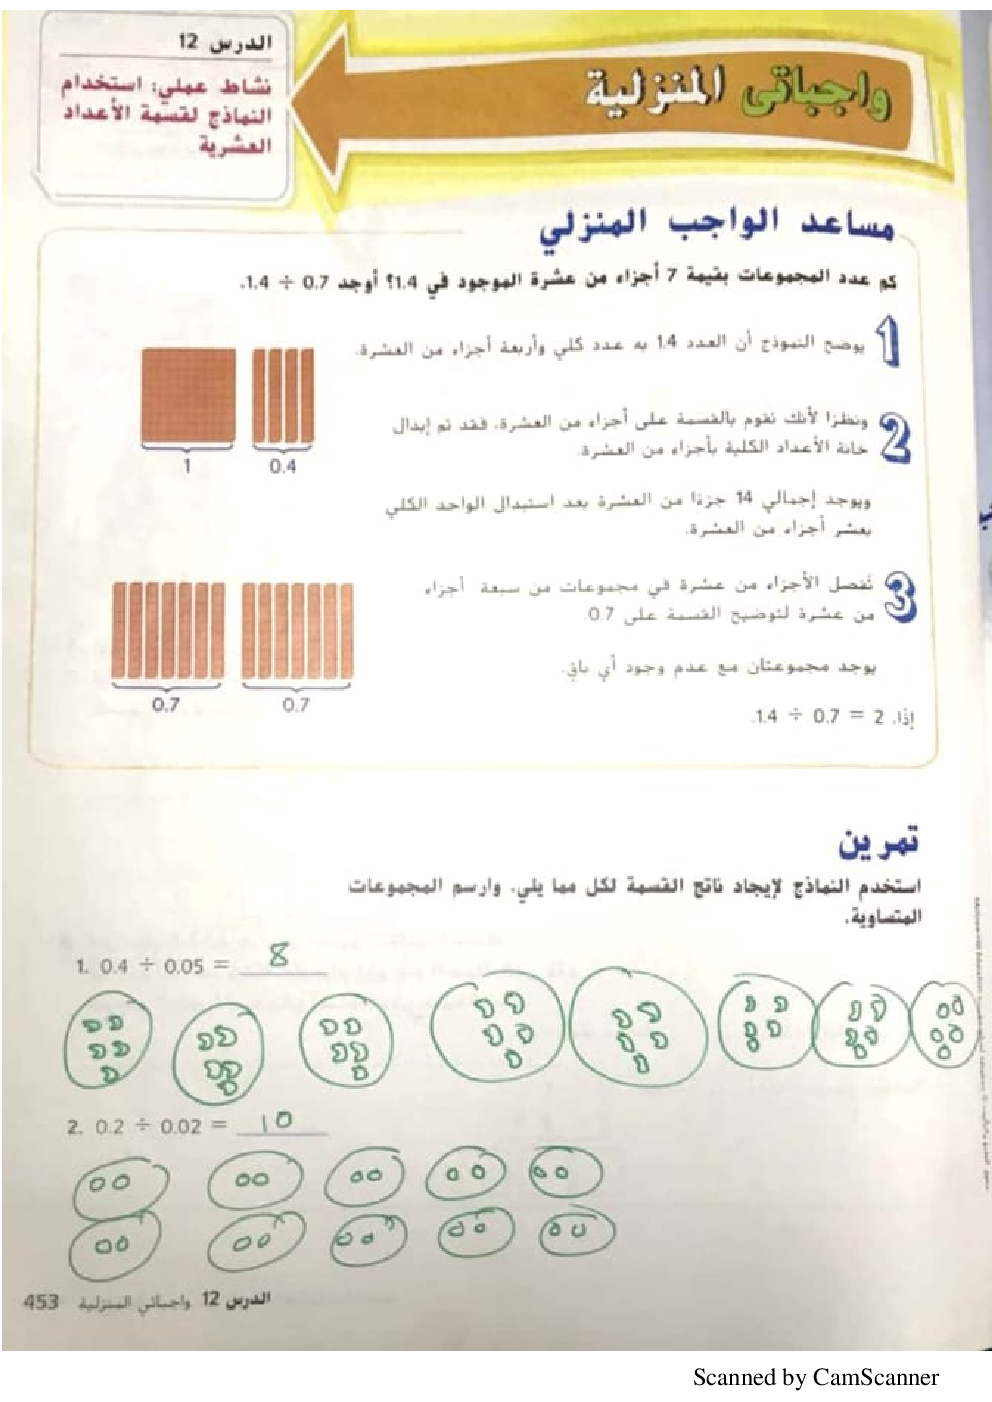 الدرس 12
نشاط عملي: استخدام
النماذج لقسمة الأعداد
العشرية
واجباتي المنزلية
مساعد الواجب المنزلي
كم عدد المجموعات بقيمة 7 أجزاء من عشرة الموجود في 1.4؟ أوجد 0.7 ÷ 1.4.
1 يوضح النموذج أن العدد 1.4 به عدد كلي وأربعة أجزاء من العشرة.
1
0.4
2 ونظرًا لأنك تقوم بالقسمة على أجزاء من العشرة، فقد تم إبدال
خانة الأعداد الكلية بأجزاء من العشرة.
ويوجد إجمالي 14 جزءًا من العشرة بعد استبدال الواحد الكلي
بعشر أجزاء من العشرة.
3 تُفصل الأجزاء من عشرة في مجموعات من سبعة أجزاء
من عشرة لتوضيح القسمة على 0.7
يوجد مجموعتان مع عدم وجود أي باقٍ.
0.7
0.7
إذًا، 2 = 0.7 ÷ 1.4.
تمرين
استخدم النماذج لإيجاد ناتج القسمة لكل مما يلي. وارسم المجموعات
المتساوية.
1. 0.4 ÷ 0.05 = 8
2. 0.2 ÷ 0.02 = 10
الدرس 12 واجباتي المنزلية 453
Scanned by CamScanner